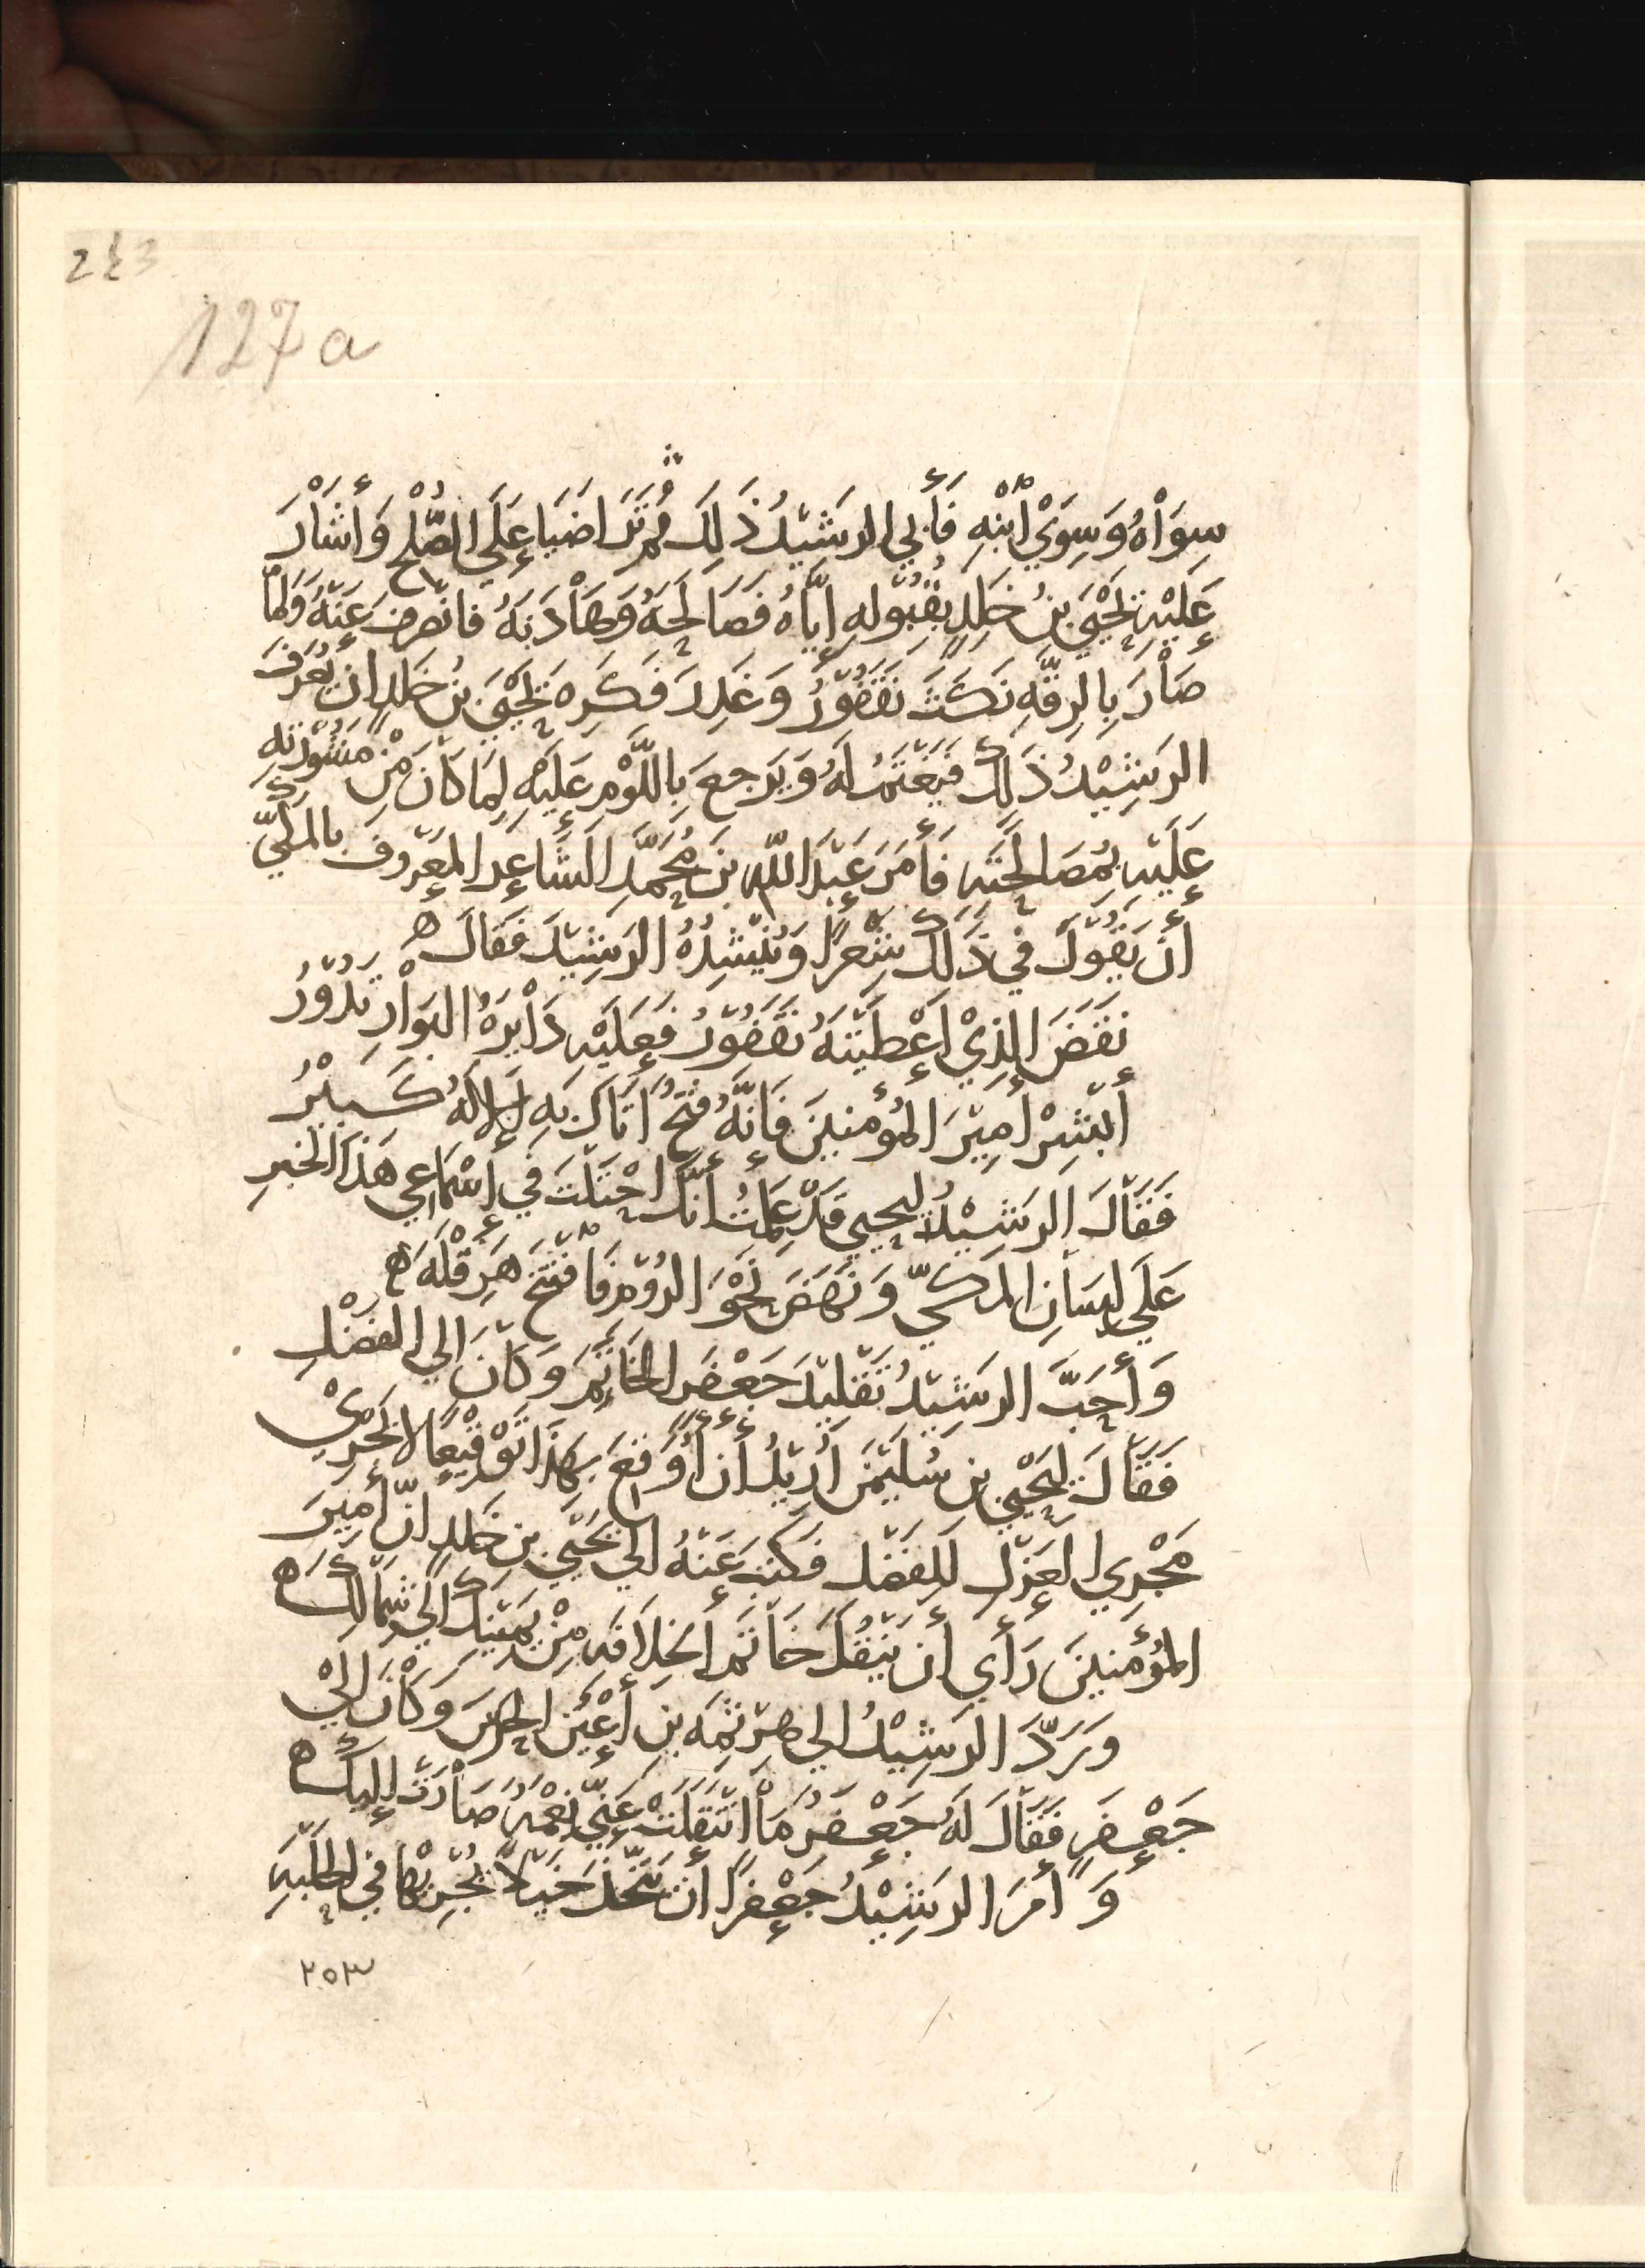 243
127a
سِوَاْهُ وَسِوَيْ اْبْنِهِ فَأَبي الرشَيْدُ ذَلِكَ ثُم تَرَاضَيَا عَلَي الصُّلْحِ وَأَشَاْرَ
عَلَيْهِ يَحْيَيَ بنُ خَلِدٍ بِقُبُوْلِهِ إيَّاهُ فَصَالَحَهُ وَهَاْدَنَهُ فانصرف عَنْهُ وَلمَّا
صَاْرَ بِالرقَّهِ نَكَثَ نَقفُوْرُ وَغَدرَ فَكَرِه يَحْيَيَ بنُ خَلِدٍ ان يُعَرِفَ
الرشِيْدُ ذَلِكَ فَيَغْتَمُ لَهُ وَيَرجعَ بِاللَّوْمِ عَلَيْهِ لِمَا كَانَ مِنْ مَشُوْرَتِهِ
عَلَيْهِ بمُصَالَحَتِهِ فَأَمَرَ عَبْدَ اللّهِ بنَ مُحَمَّدٍ الشَاعِرَ المعْرُوفَ بالمَكِّيّ
أَنْ يَقُوْلَ فِي ذَلِكَ شِعْرًا وَيُنْشِدُهُ الرَشِيْدَ فَقَالَ ه
نَقَضَ الذِيْ أَعْطَيْتَهُ نَقفُوْرُ فَعَلَيْهِ دَاْيِرَهُ البَوَاْرِ تَدُوْرُ
أَبْشِرْ أَمِيْرَ المُؤْمنِينَ فَإنَّهُ فَتْحٌ أتَاكَ بِهِ الإلَهُ كَبِيْرُ
فَقَاْلَ الرشِيْدُ ليحيي قَدْ عَلمتُ أنَّكَ احْتَلْتَ فِي إسْمَاعي هَذَا الخبرِ
عَلَي لِسَاْنِ المَكيِّ وَنَهَضَ نَحْوَ الرُوْمِ فَافْتَتَحَ هَرقْلَهَ ه
وَأَحَبَّ الرشَيْدُ تَقْلِيْدَ جَعْفَرٍ الخَاتَمَ وَكَانَ اِلي الفَضْلِ
فَقَاْلَ لِيَحْيي بنِ سُلَيْمَنَ أُرِيْدُ أن أُوَقعَ بِهَذَا تَوْقِيْعًا لا يَجْرِيْ
مَجْرِي العَزْلِ لِلفَضْل فَكتَبَ عَنْهُ الي يَحْيَي بنِ خَلِدٍ انّ أمِيْرَ
المُؤْمنِينَ رَأَي أن يَنْقُلَ خَاْتَمَ الخِلَافَهِ مِنْ يَمْينكَ الي شِمَالكَ ه
وَرَدَّ الرَشِيْدُ الي هَرْثمَه بنِ أَعْيَنَ الحرَسَ وَكَاْنَ اليْ
جَعْفَرٍ فَقَاْلَ لَهُ جَعْفَرُ مَاْ انْتَقَلَتْ عَنِّي نِعْمَهٌ صَاْرَتْ إليكَ ه
وَأَمَرَ الرَشِيْدُ جَعْفَرًا أن يَتَّخِذَ خَيْلًا يُجْرِيْهَا فِي الحَلْبَهِ
٢٥٣